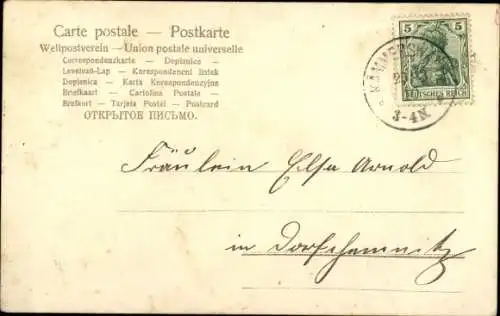 Carte postale — Postkarte
Weltpostverein — Union postale universelle
Correspondenzkarte — Dopisnice —
Levelező-Lap — Korespondencni listek
Dopisnica — Karta Korespondencyjna
Briefkaart — Cartolina Postale —
Brefkort — Tarjeta Postal — Postcard
ОТКРЫТОЕ ПИСЬМО.
5 5
DEUTSCHES REICH
3-4N
Fräulein Elsa Arnold
in Dorfchemnitz